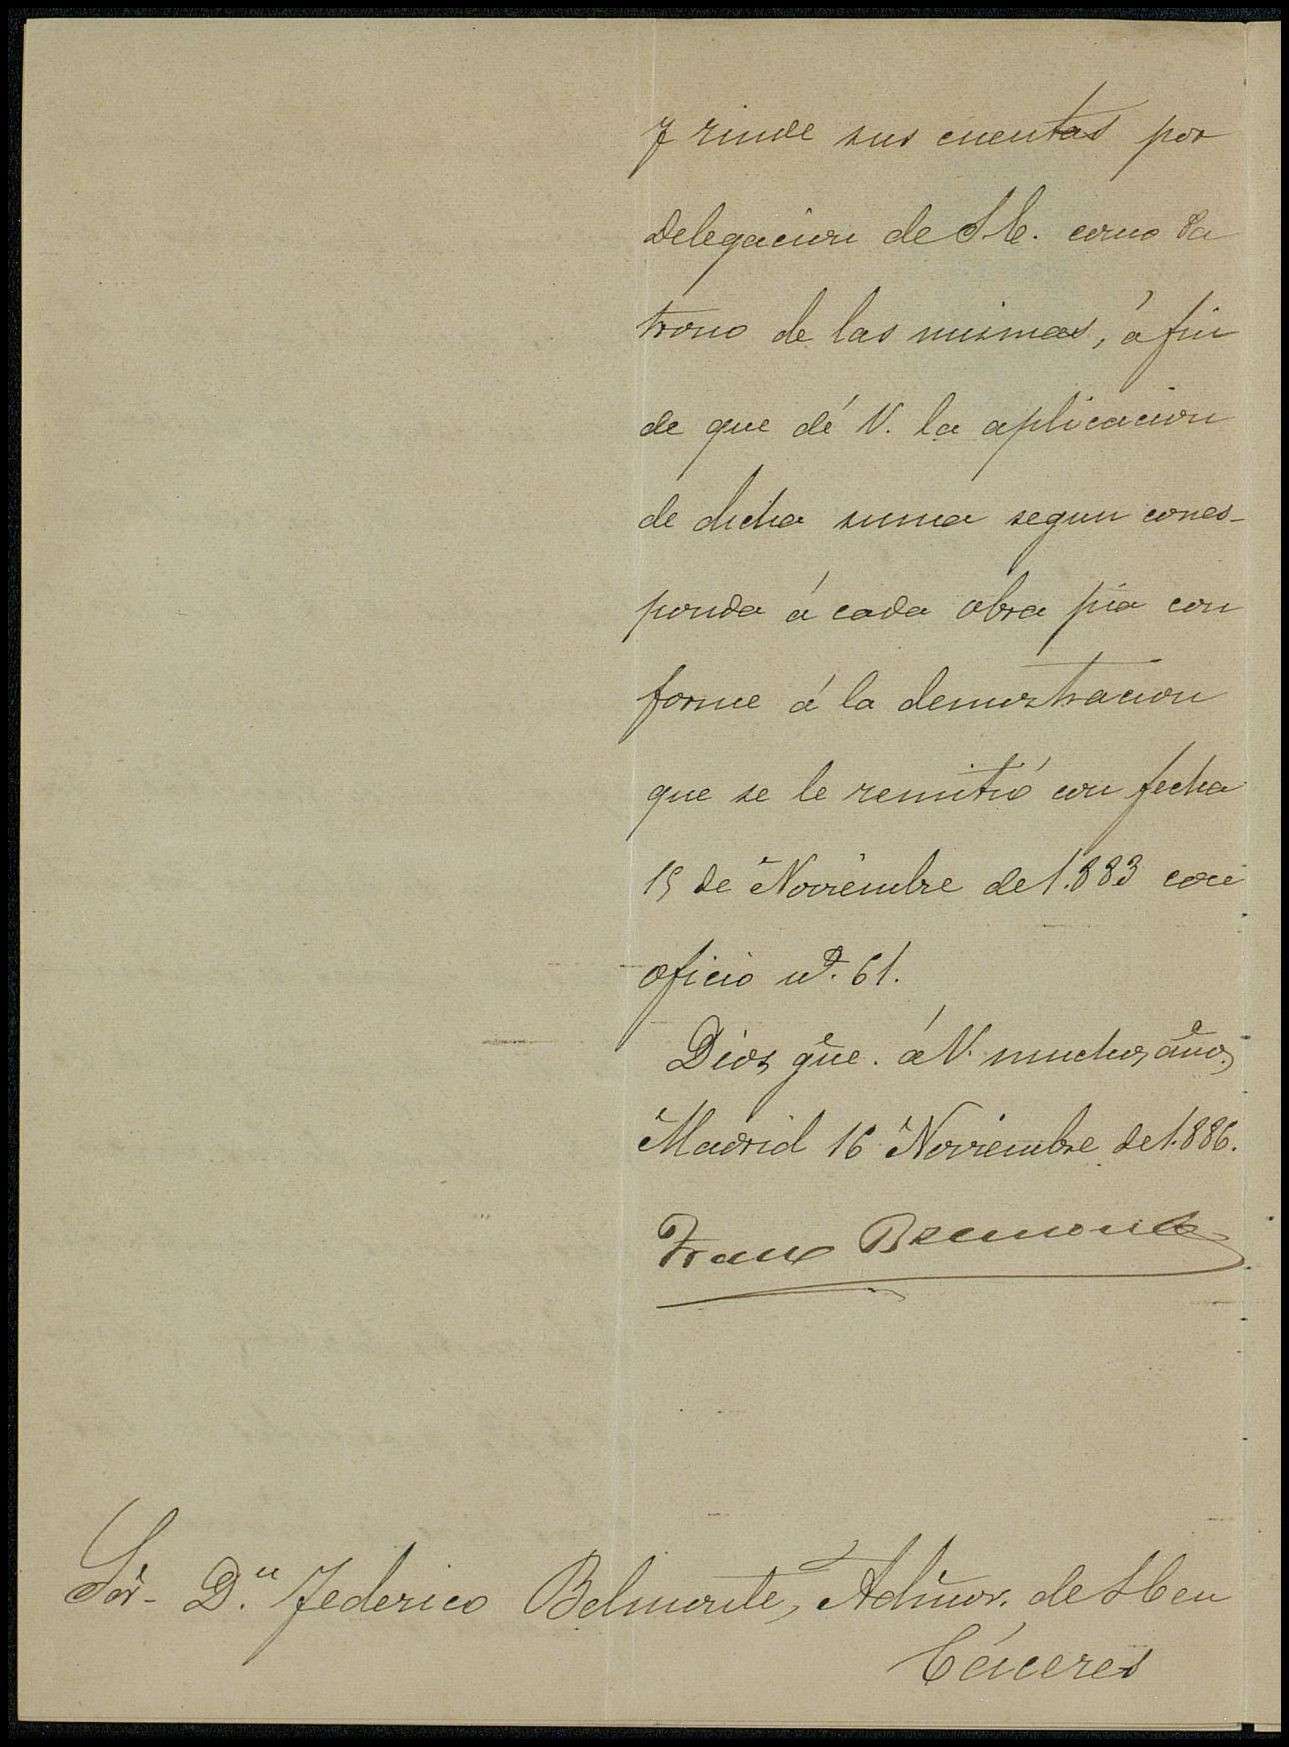 y rinde sus cuentas por
delegacion de S.E. como Pa
trono de las mismas, á fin
de que dé V. la aplicacion
de dicha suma segun corres-
ponda á cada obra pia con
forme á la demostracion
que se le remitió con fecha
15 de Noviembre de 1.883 con
oficio nº. 61.
Dios gue. á V. muchos años.
Madrid 16 Noviembre de 1.886.
Franco Belmonte
Sor. Dn. Federico Belmonte, Admor. de S.E. en
Cáceres